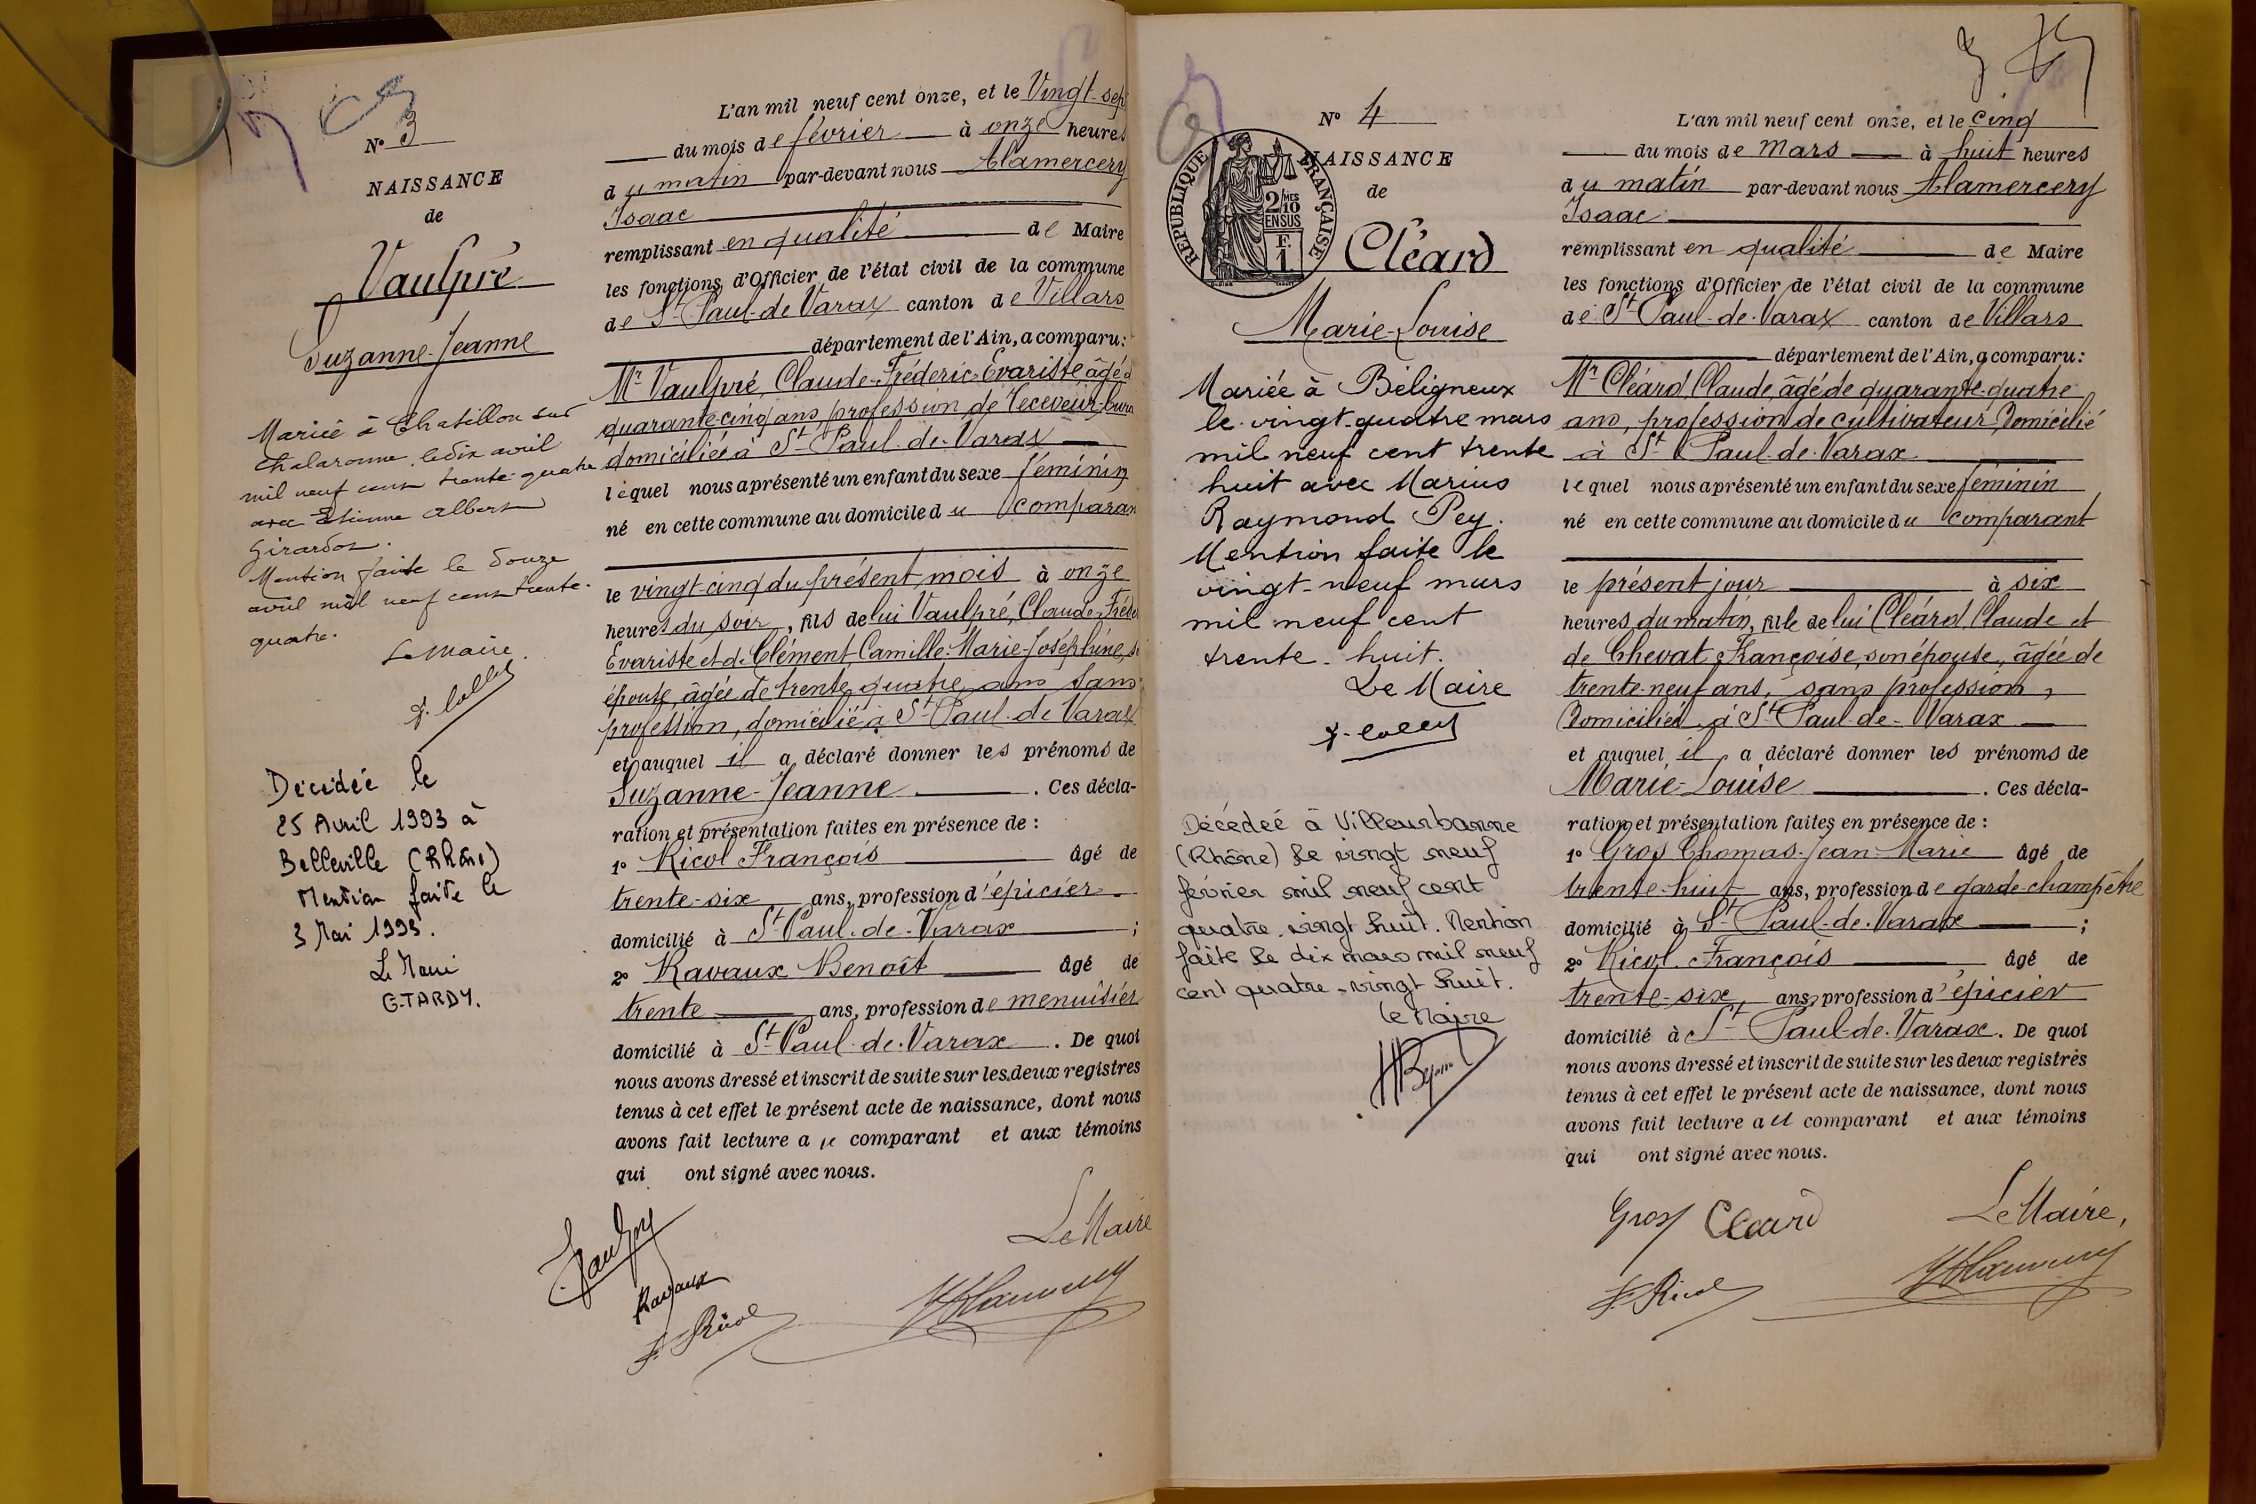 N° 3
NAISSANCE
de
Vaulpré
Suzanne-Jeanne
Mariée à Chatillon sur
Chalaronne, le dix avril
mil neuf cent trente-quatre
avec Etienne Albert
Girardon.
Mention faite le douze
avril mil neuf cent trente-
quatre.
Le Maire.
Décédée le
25 Avril 1993 à
Belleville (Rhône)
Mention faite le
3 Mai 1993.
Le Maire
G. TARDY.
L'an mil neuf cent onze, et le Vingt-sep
du mois de février à onze heures
du matin par-devant nous Alamercery
Isaac
remplissant en qualité de Maire
les fonctions d'Officier de l'état civil de la commune
de St Paul-de-Varax canton de Villars
département de l'Ain, a comparu:
Mr Vaulpré, Claude-Fréderic-Evariste âgé d
quarante-cinq ans, profession de receveur-bura
domicilié à St Paul-de-Varax
lequel nous a présenté un enfant du sexe féminin
né en cette commune au domicile du comparan
le vingt-cinq du présent mois à onze
heures du soir, fils de lui Vaulpré, Claude-Fréde
Evariste et de Clément, Camille-Marie-Joséphine, s
épouse, âgée de trente quatre ans sans
profession, domicilié à St Paul-de-Varax
et auquel il a déclaré donner les prénoms de
Suzanne-Jeanne . Ces décla-
ration et présentation faites en présence de :
1° Ricol François âgé de
trente-six ans, profession d'épicier
domicilié à St Paul-de-Varax ;
2° Ravaux Benoît âgé de
trente ans, profession de menuisier
domicilié à St Paul-de-Varax . De quoi
nous avons dressé et inscrit de suite sur les deux registres
tenus à cet effet le présent acte de naissance, dont nous
avons fait lecture au comparant et aux témoins
qui ont signé avec nous.
Le Maire
Ravaux
F. Ricol
N° 4
RÉPUBLIQUE FRANÇAISE
2/10 EN SUS
F. 1
NAISSANCE
de
Cléard
Marie-Louise
Mariée à Béligneux
le vingt-quatre mars
mil neuf cent trente
huit avec Marius
Raymond Pey.
Mention faite le
vingt-neuf mars
mil neuf cent
trente-huit.
Le Maire
Décédée à Villeurbanne
(Rhône) le vingt neuf
février mil neuf cent
quatre-vingt huit. Mention
faite le dix mars mil neuf
cent quatre-vingt huit.
Le Maire
L'an mil neuf cent onze, et le cinq
du mois de mars à huit heures
du matin par-devant nous Alamercery
Isaac
remplissant en qualité de Maire
les fonctions d'Officier de l'état civil de la commune
de St Paul-de-Varax canton de Villars
département de l'Ain, a comparu:
Mr Cléard Claude, âgé de quarante-quatre
ans, profession de cultivateur domicilié
à St Paul-de-Varax
lequel nous a présenté un enfant du sexe féminin
né en cette commune au domicile du comparant
le présent jour à six
heures du matin, fille de lui Cléard, Claude et
de Chevat Françoise, son épouse, âgée de
trente-neuf ans, sans profession,
Domiciliés à St Paul-de-Varax
et auquel il a déclaré donner les prénoms de
Marie-Louise . Ces décla-
ration et présentation faites en présence de :
1° Gros Thomas-Jean-Marie âgé de
trente-huit ans, profession de garde-champêtre
domicilié à St Paul-de-Varax ;
2° Ricol François âgé de
trente-six ans, profession d'épicier
domicilié à St Paul-de-Varax. De quoi
nous avons dressé et inscrit de suite sur les deux registres
tenus à cet effet le présent acte de naissance, dont nous
avons fait lecture au comparant et aux témoins
qui ont signé avec nous.
Gros Cléard Le Maire,
F. Ricol